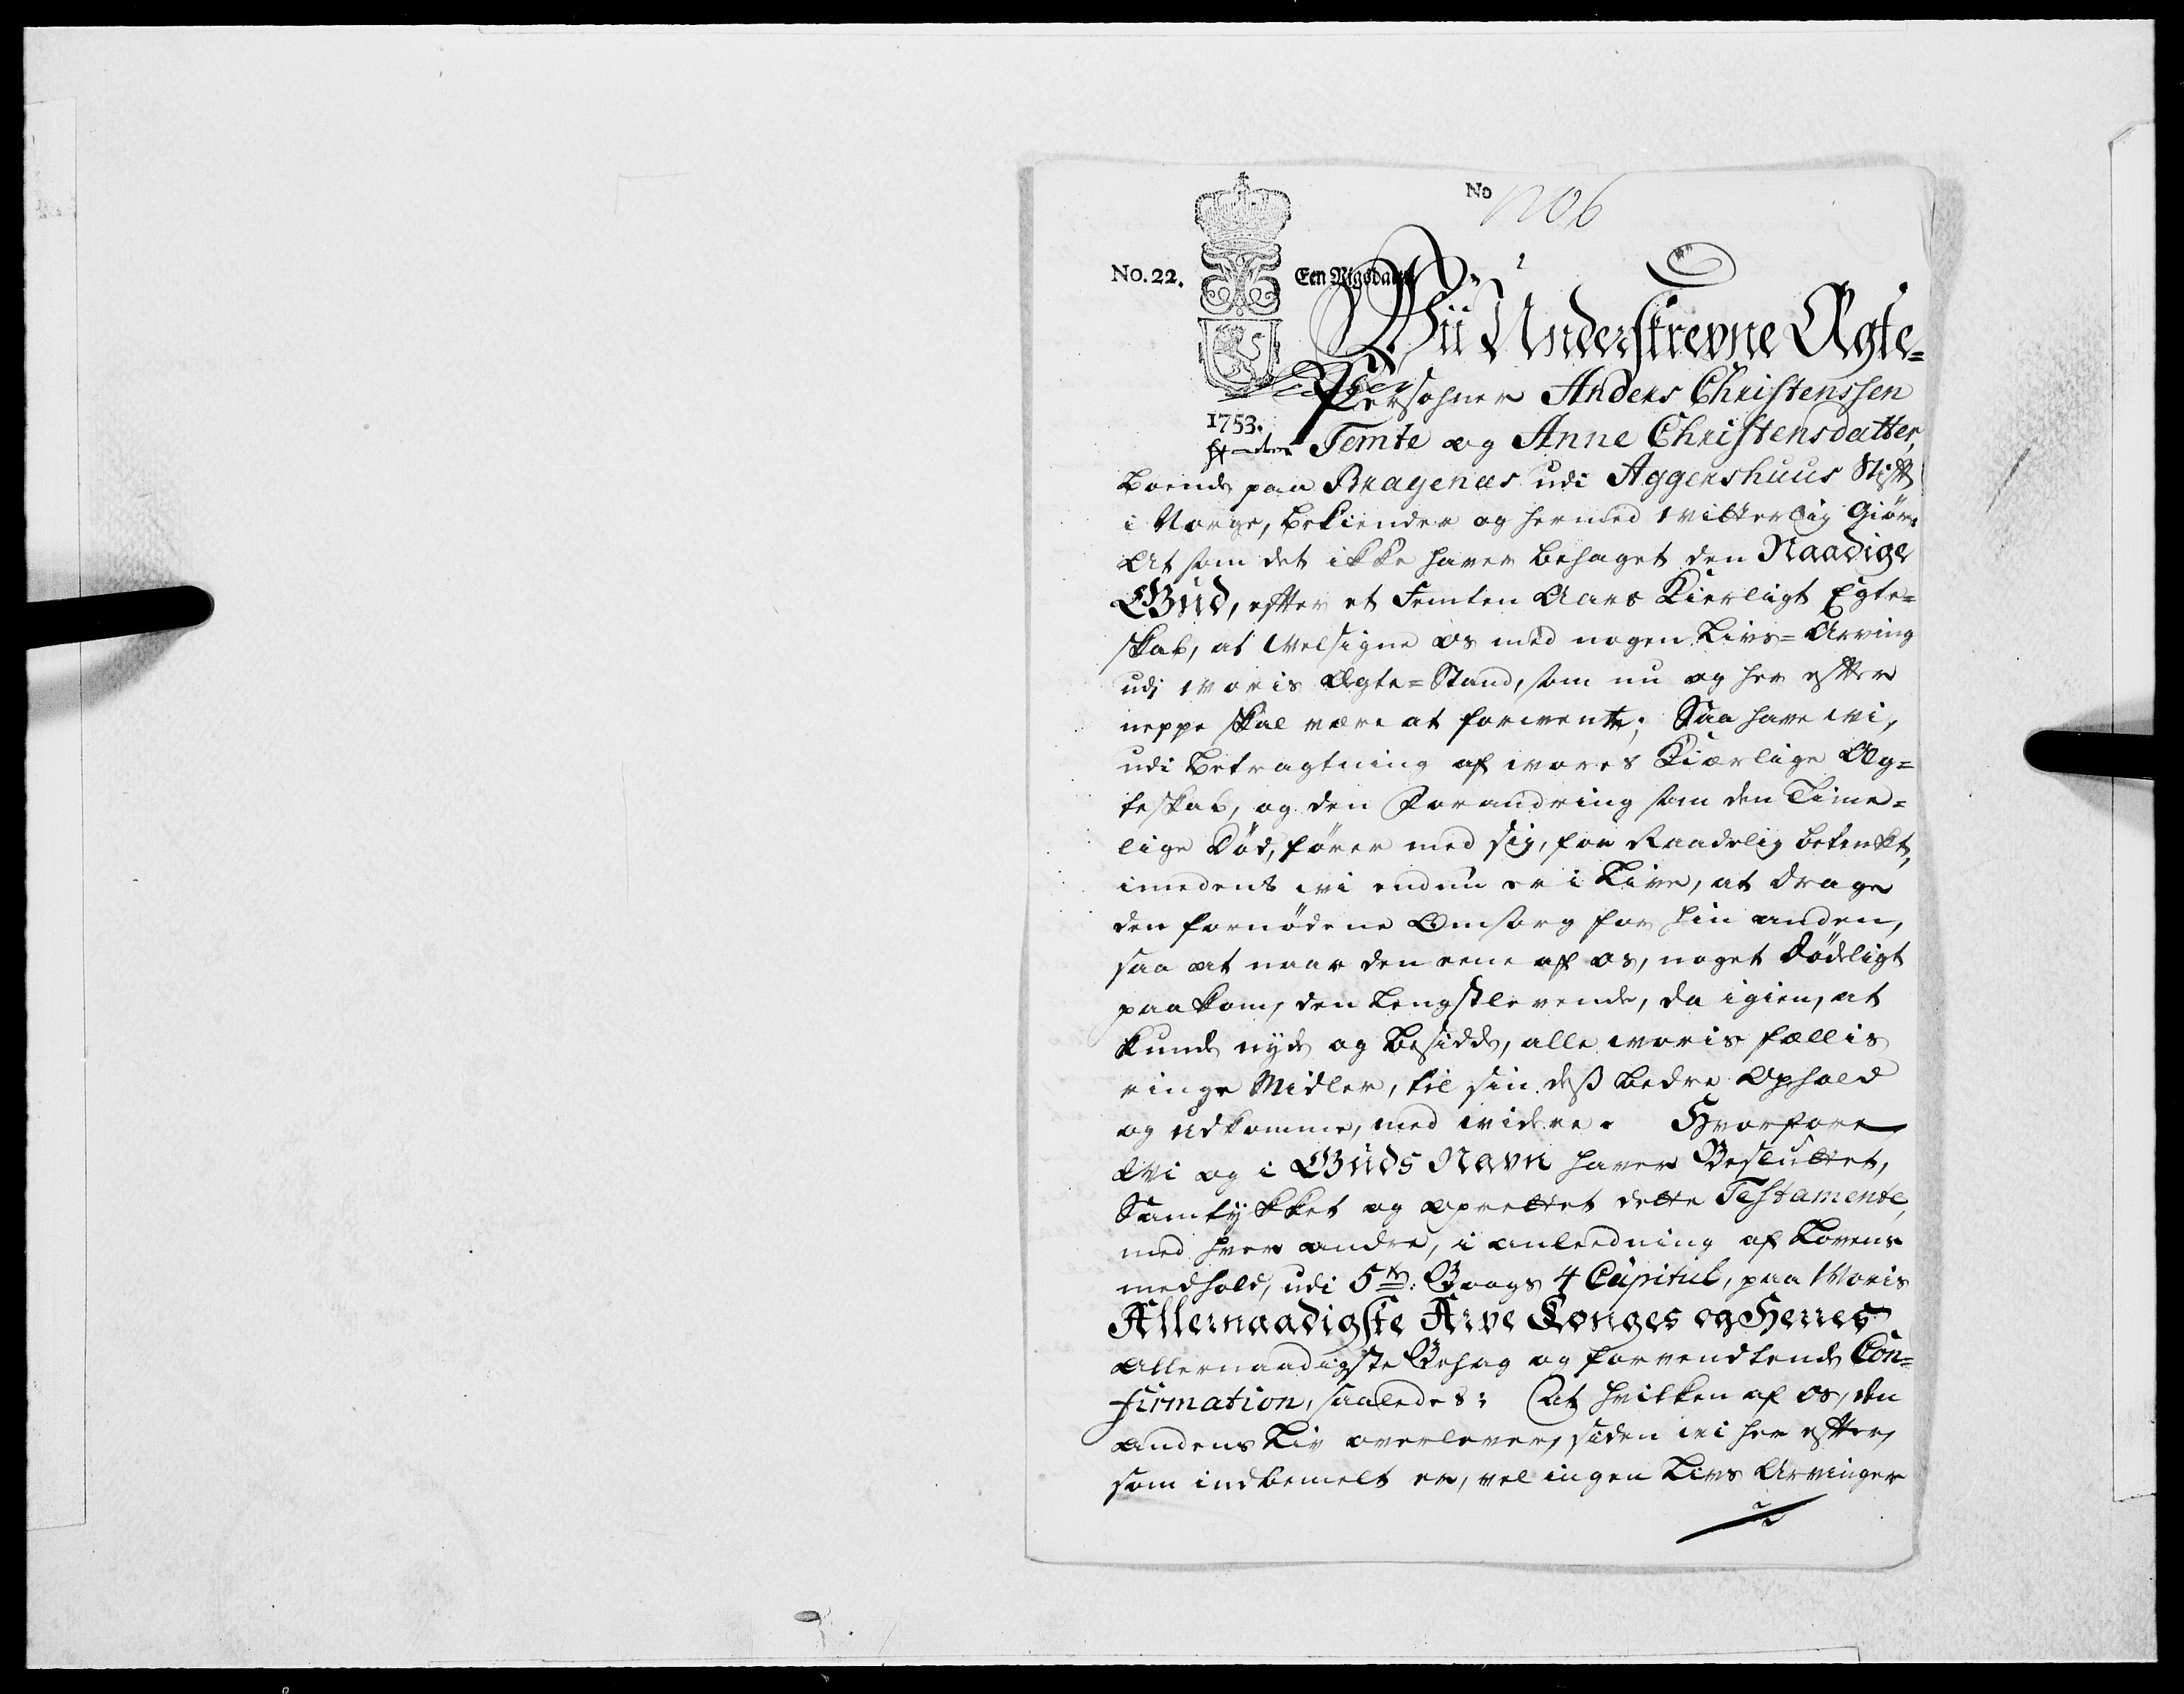 No
No 6
No. 22.
Een Rigsdaler
Wii Underskrevne Ægte=
Persohner Anders Christenssen
1753.
Temte og Anne Christensdatter,
Boende paa Bragenæs udi Aggershuus Stift
i Norge, bekiender og hermed witterlig Giør.
At som det ikke haver behaget den Naadige
Gud, efter et Femten Aars Kierligt Egte=
skab, at Welsigne os med nogen Livs=Arving
udj woris Ægte=Stand, som nu og her efter
neppe skal være at forwente; Saa have wi,
udi Betragtning af wores Kiærlige Æg=
teskab, og den Forandring som den Time=
lige Død, fører med sig, for Raadelig betenkt,
imedens wi endnu er i Live, at drage
den fornødene Omsorg for hin anden,
saa at naar den eene af os, noget dødeligt
paakom, den Lengstlevende, da igien, at
kunde nyde og Besidde, alle woris fællis
ringe Midler, til sin dess bedre Ophold
og udkomme, med widere. Hvorfore
Wi og i Guds Navn haver Besluttet,
Samtykket og oprettet dette Testamente,
med hver andre, i anleedning af Lovens
medhold, udi 5te: Boogs 4 Capitul, paa Woris
Allernaadigste Arve Konges og Herres
Allernaadigste Behag og forvendtende Con=
firmation, saaledes: At hvilken af os, den
andens Liv overlever, siden wi her efter,
som indbemelt er, vel ingen Livs Arvinger